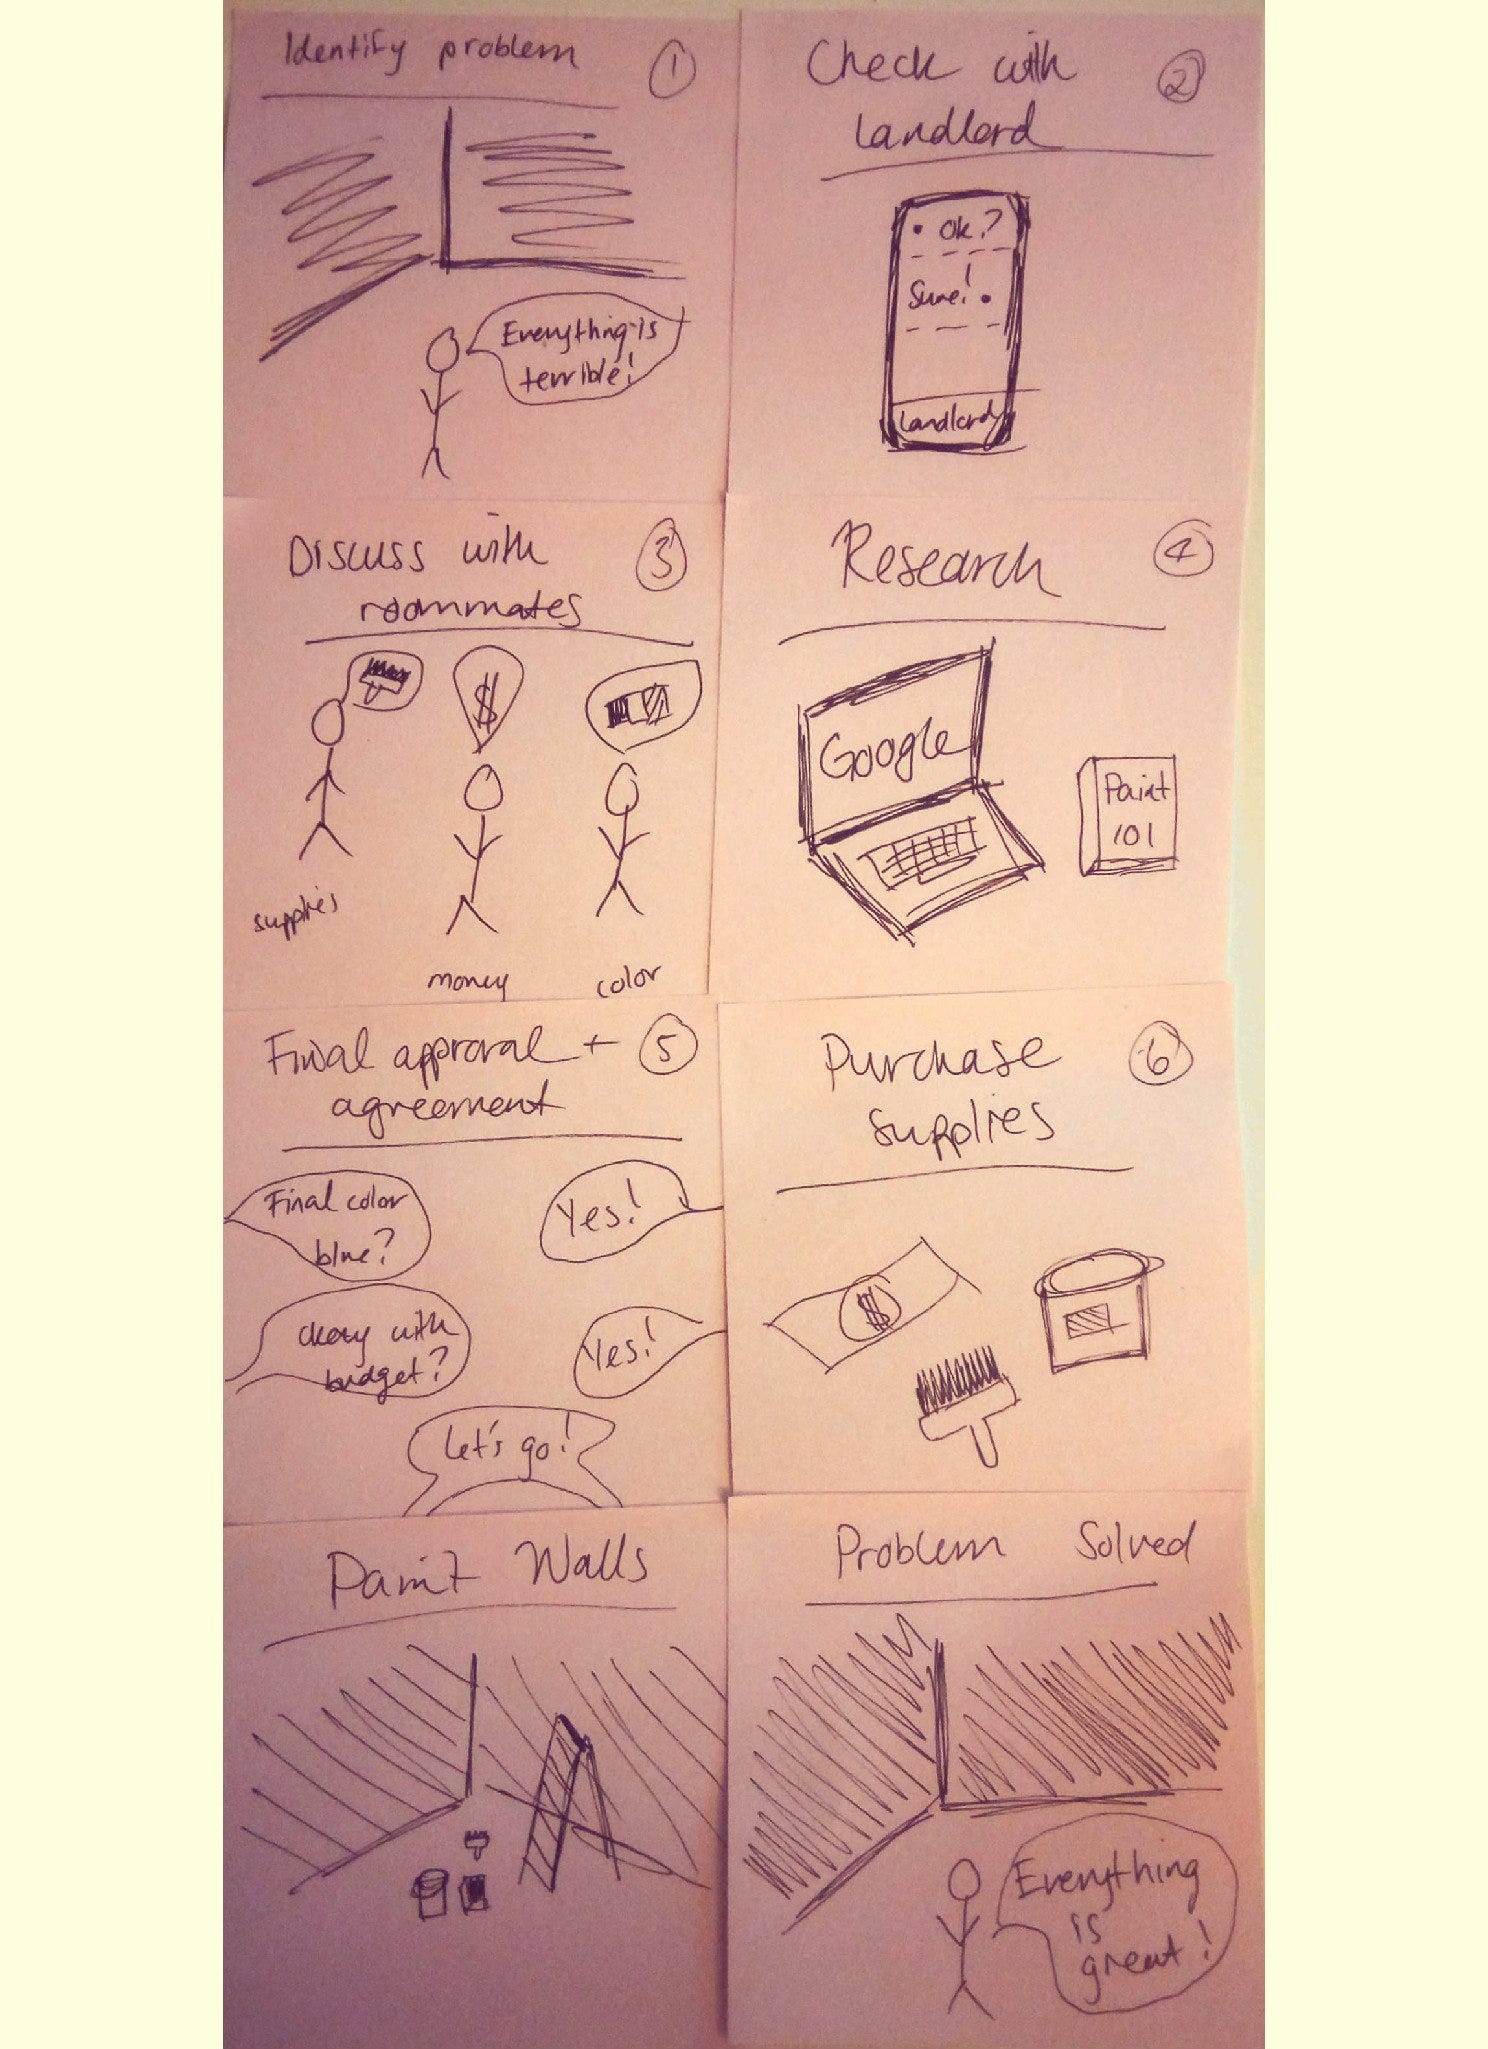 Identify problem 1
Everything is
terrible!
Check with 2
landlord
Ok?
Sure!
Landlord
Discuss with 3
roommates
$
supplies
money
color
Research 4
Google
Paint
101
Final approval + 5
agreement
Final color
blue?
Yes!
okay with
budget?
Yes!
Let's go!
Purchase 6
supplies
$
Paint Walls
Problem Solved
Everything
is
great!